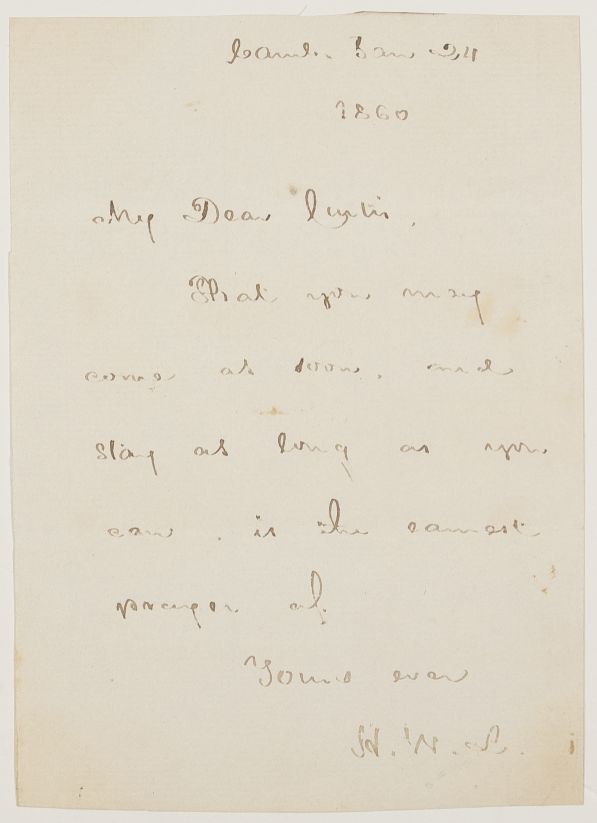 Camb. Jan 24
1860
My Dear Curtis,
That you may
come as soon, and
stay as long as you
can, is the earnest
prayer of
Yours ever
H. W. L.